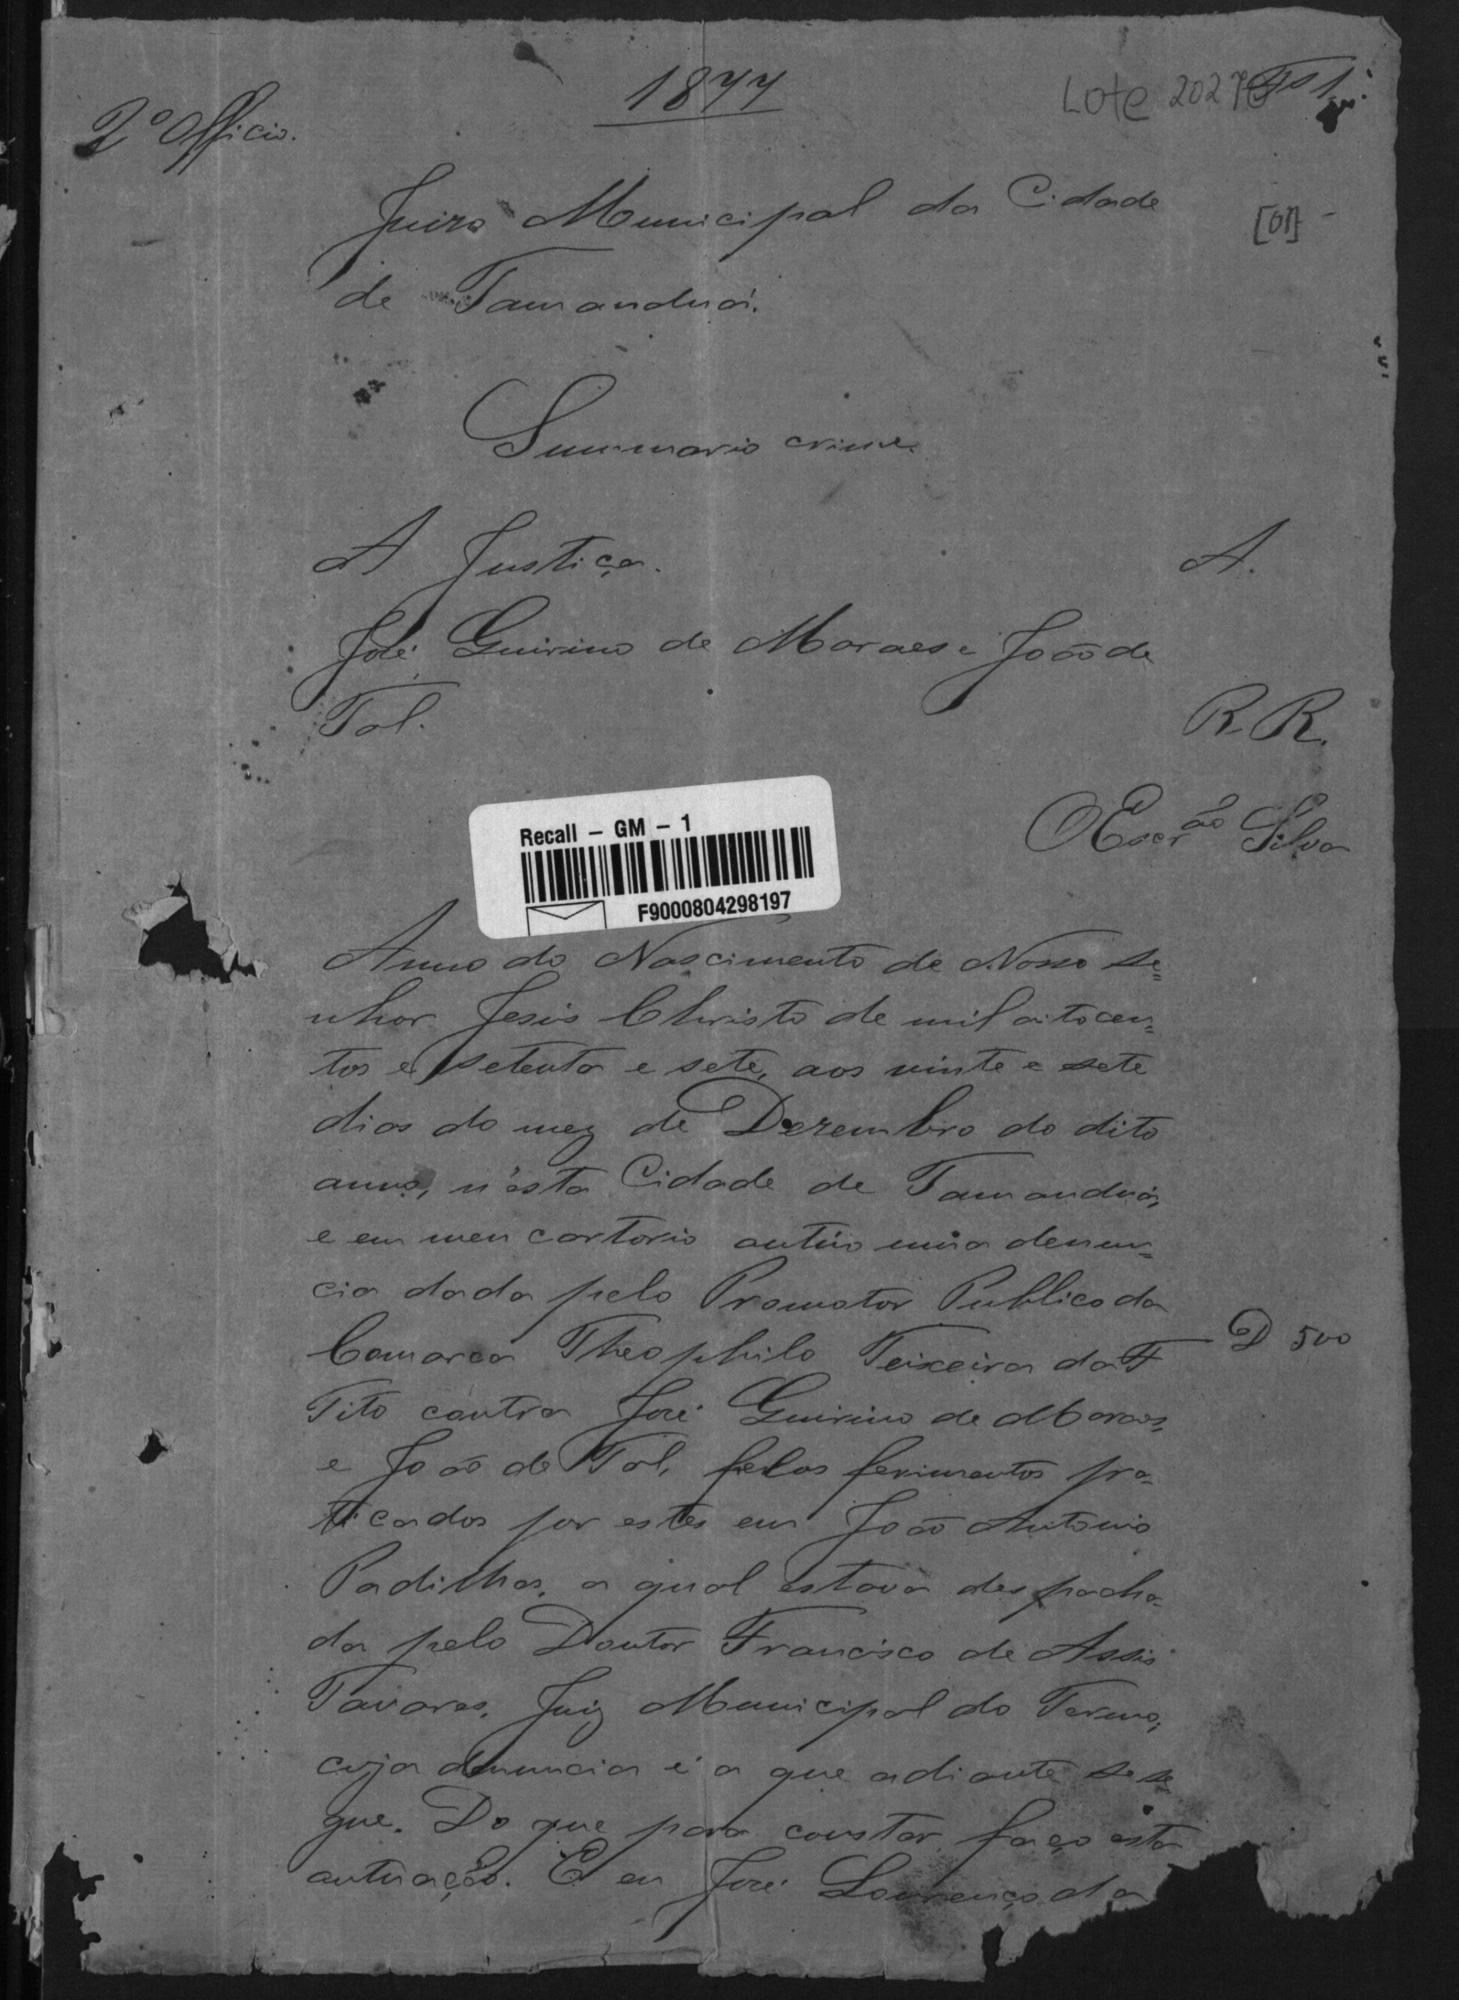 1877
Lote 20276 Fs 1.
2º Officio.
Juizo Municipal da Cidade
[01]
de Tamanduá.
Summario crime.
A Justiça. A.
José Guirino de Moraes e João de
Tal. R R.
O Escr.ão Silva
Recall – GM – 1
F9000804298197
Anno do Nascimento de Nosso Se=
nhor Jesus Christo de mil oitocen=
tos e setenta e sete, aos vinte e sete
dias do mez de Dezembro do dito
anno, n'esta Cidade de Tamanduá,
e em meu cartorio autúo uma denun=
cia dada pelo Promotor Publico da
Comarca Theophilo Teixeira da F
D 500
Tito contra José Guirino de Moraes,
e João de Tal, pelos ferimentos pra-
ticados por estes em João Antonio
Padilha, a qual estava despacha-
da pelo Doutor Francisco de Assis
Tavares, Juiz Municipal do Termo,
cuja denuncia é a que adiante se se
gue. Do que para constar, faço esta
autuação. E eu José Lourenço da